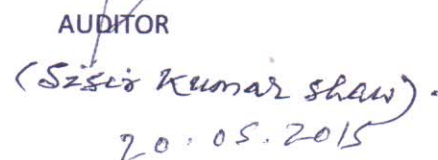 AUDITOR
(Sisir Kumar Shaw).
20.05.2015